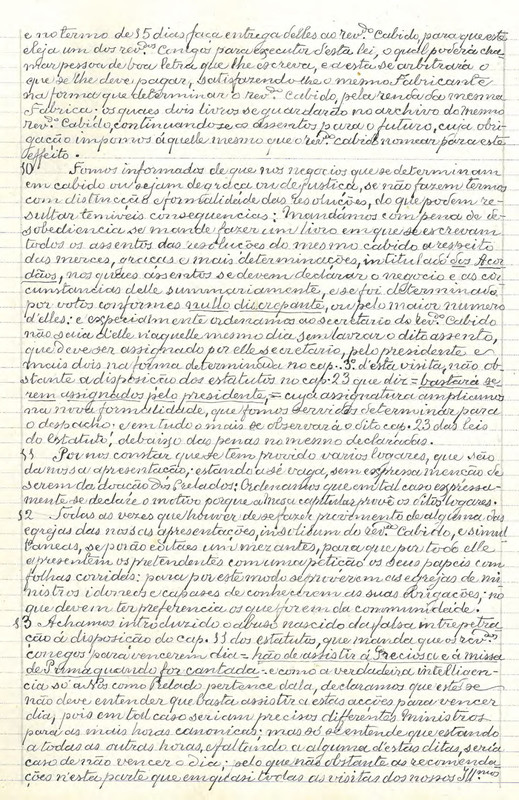 e no termo de 15 dias faça entrega delles ao rev.do Cabido, para que este
eleja um dos rev.dos Conegos para executor d'esta lei, o qual poderá cha-
mar pessoa de boa letra que lhe escreva, e a esta se arbitrará o
que se lhe deve pagar, satisfazendo-lhe o mesmo Fabricante
na forma que determinar o rev.do Cabido, pela renda da mesma
Fabrica: os quaes dois livros se guardarão no archivo do mesmo
rev.do Cabido, continuando-se os assentos para o futuro, cuja obri-
gação impomos áquelle mesmo que o rev.do cabido nomear para este
effeito.
10 Fomos informados de que nos negocios que se determinam
em cabido ou sejam de graça ou de justiça, se não fazem termos
com distincção e formalidade das resoluções, do que podem re-
sultar temiveis consequencias: Mandamos com pena de de-
sobediencia se mande fazer um livro em que se escrevam
todos os assentos das resoluções do mesmo cabido a respeito
das merces, graças e mais determinações, intitulado dos Acor-
dãos, nos quaes assentos se devem declarar o negocio e as cir-
cumstancias delle summariamente, e se foi determinado
por votos conformes nullo discrepante, ou pelo maior numero
d'elles: e especialmente ordenamos ao secretario do rev.do Cabido
não saia d'elle n'aquelle mesmo dia sem lavrar o dito assento,
que deve ser assignado por elle secretário, pelo presidente e
mais dois na forma determinada no cap. 3.o d'esta visita, não ob-
stante a disposição dos estatutos no cap: 23 que diz = bastará se-
rem assignados pelo presidente, = cuja assignatura ampliamos
na nova formalidade, que fomos servidos determinar para
o despacho: e em tudo o mais se observará o dito cap. 23 das leis
do Estatuto, debaixo das penas no mesmo declaradas.
11 Por nos constar que se tem provido varios logares, que são
da nossa apresentação; estando a sé vaga, sem expressa menção de
serem da doação dos Prelados: Ordenamos que em tal caso expressa-
mente se declare o motivo porque a mesa capitular provê os ditos logares.
12 Todas as vezes que houver de se fazer provimento de alguma das
egrejas das nossas apresentações, in solidum do rev.do Cabido, e simul-
taneas, se porão editaes um mez antes, para que por todo elle
apresentem os pretendentes com uma petição os seus papeis com
folhas corridas: para por este modo se proverem as egrejas de mi-
nistros idoneos e capases de conhecerem as suas obrigações; no
que devem ter preferencia os que forem da communidade.
13 Achamos introduzido o abuso nascido da falsa intrepetra-
ção á disposição do cap. 11 dos estatutos, que manda que os rev.dos
conegos para vencerem dia = hão de assistir á Preciosa e á missa
de Prima quando for cantada: e como a verdadeira intelligen-
cia só a Nós como Prelado pertence dala, declaramos que este se
não deve entender que basta assistir a estas acções para vencer
dia, pois em tal caso seriam precisos differentes ministros
para as mais horas canonicas; mas só se entende que estando
a todas as outras horas, e faltando a alguma d'estas ditas, seria
caso de não vencer o dia; pelo que não obstante as recomenda-
ções n'esta parte que em quasi todas as visitas dos nossos Ill.mos